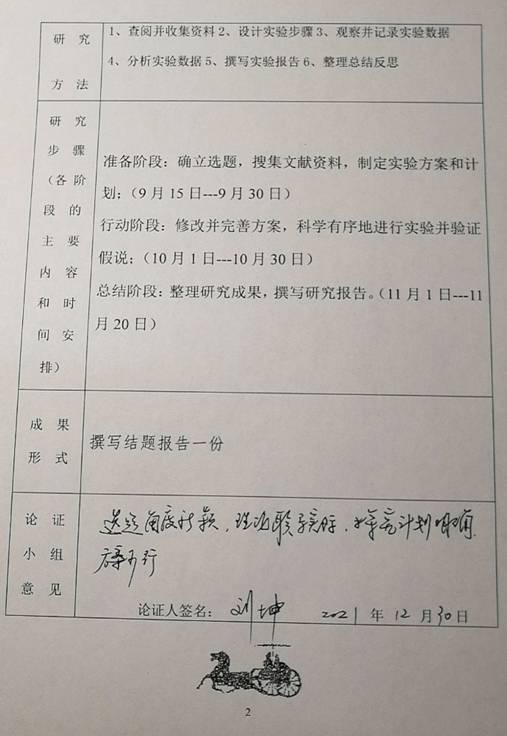 研究方法
1、查阅并收集资料2、设计实验步骤3、观察并记录实验数据
4、分析实验数据5、撰写实验报告6、整理总结反思
研究步骤（各阶段的主要内容和时间安排）
准备阶段：确立选题，搜集文献资料，制定实验方案和计
划；（9月15日---9月30日）
行动阶段：修改并完善方案，科学有序地进行实验并验证
假说；（10月1日---10月30日）
总结阶段：整理研究成果，撰写研究报告。（11月1日---11
月20日）
成果形式
撰写结题报告一份
论证小组意见
选题角度新颖，理论联系实际，研究计划明确
可行
论证人签名：刘坤 2021年12月30日
2